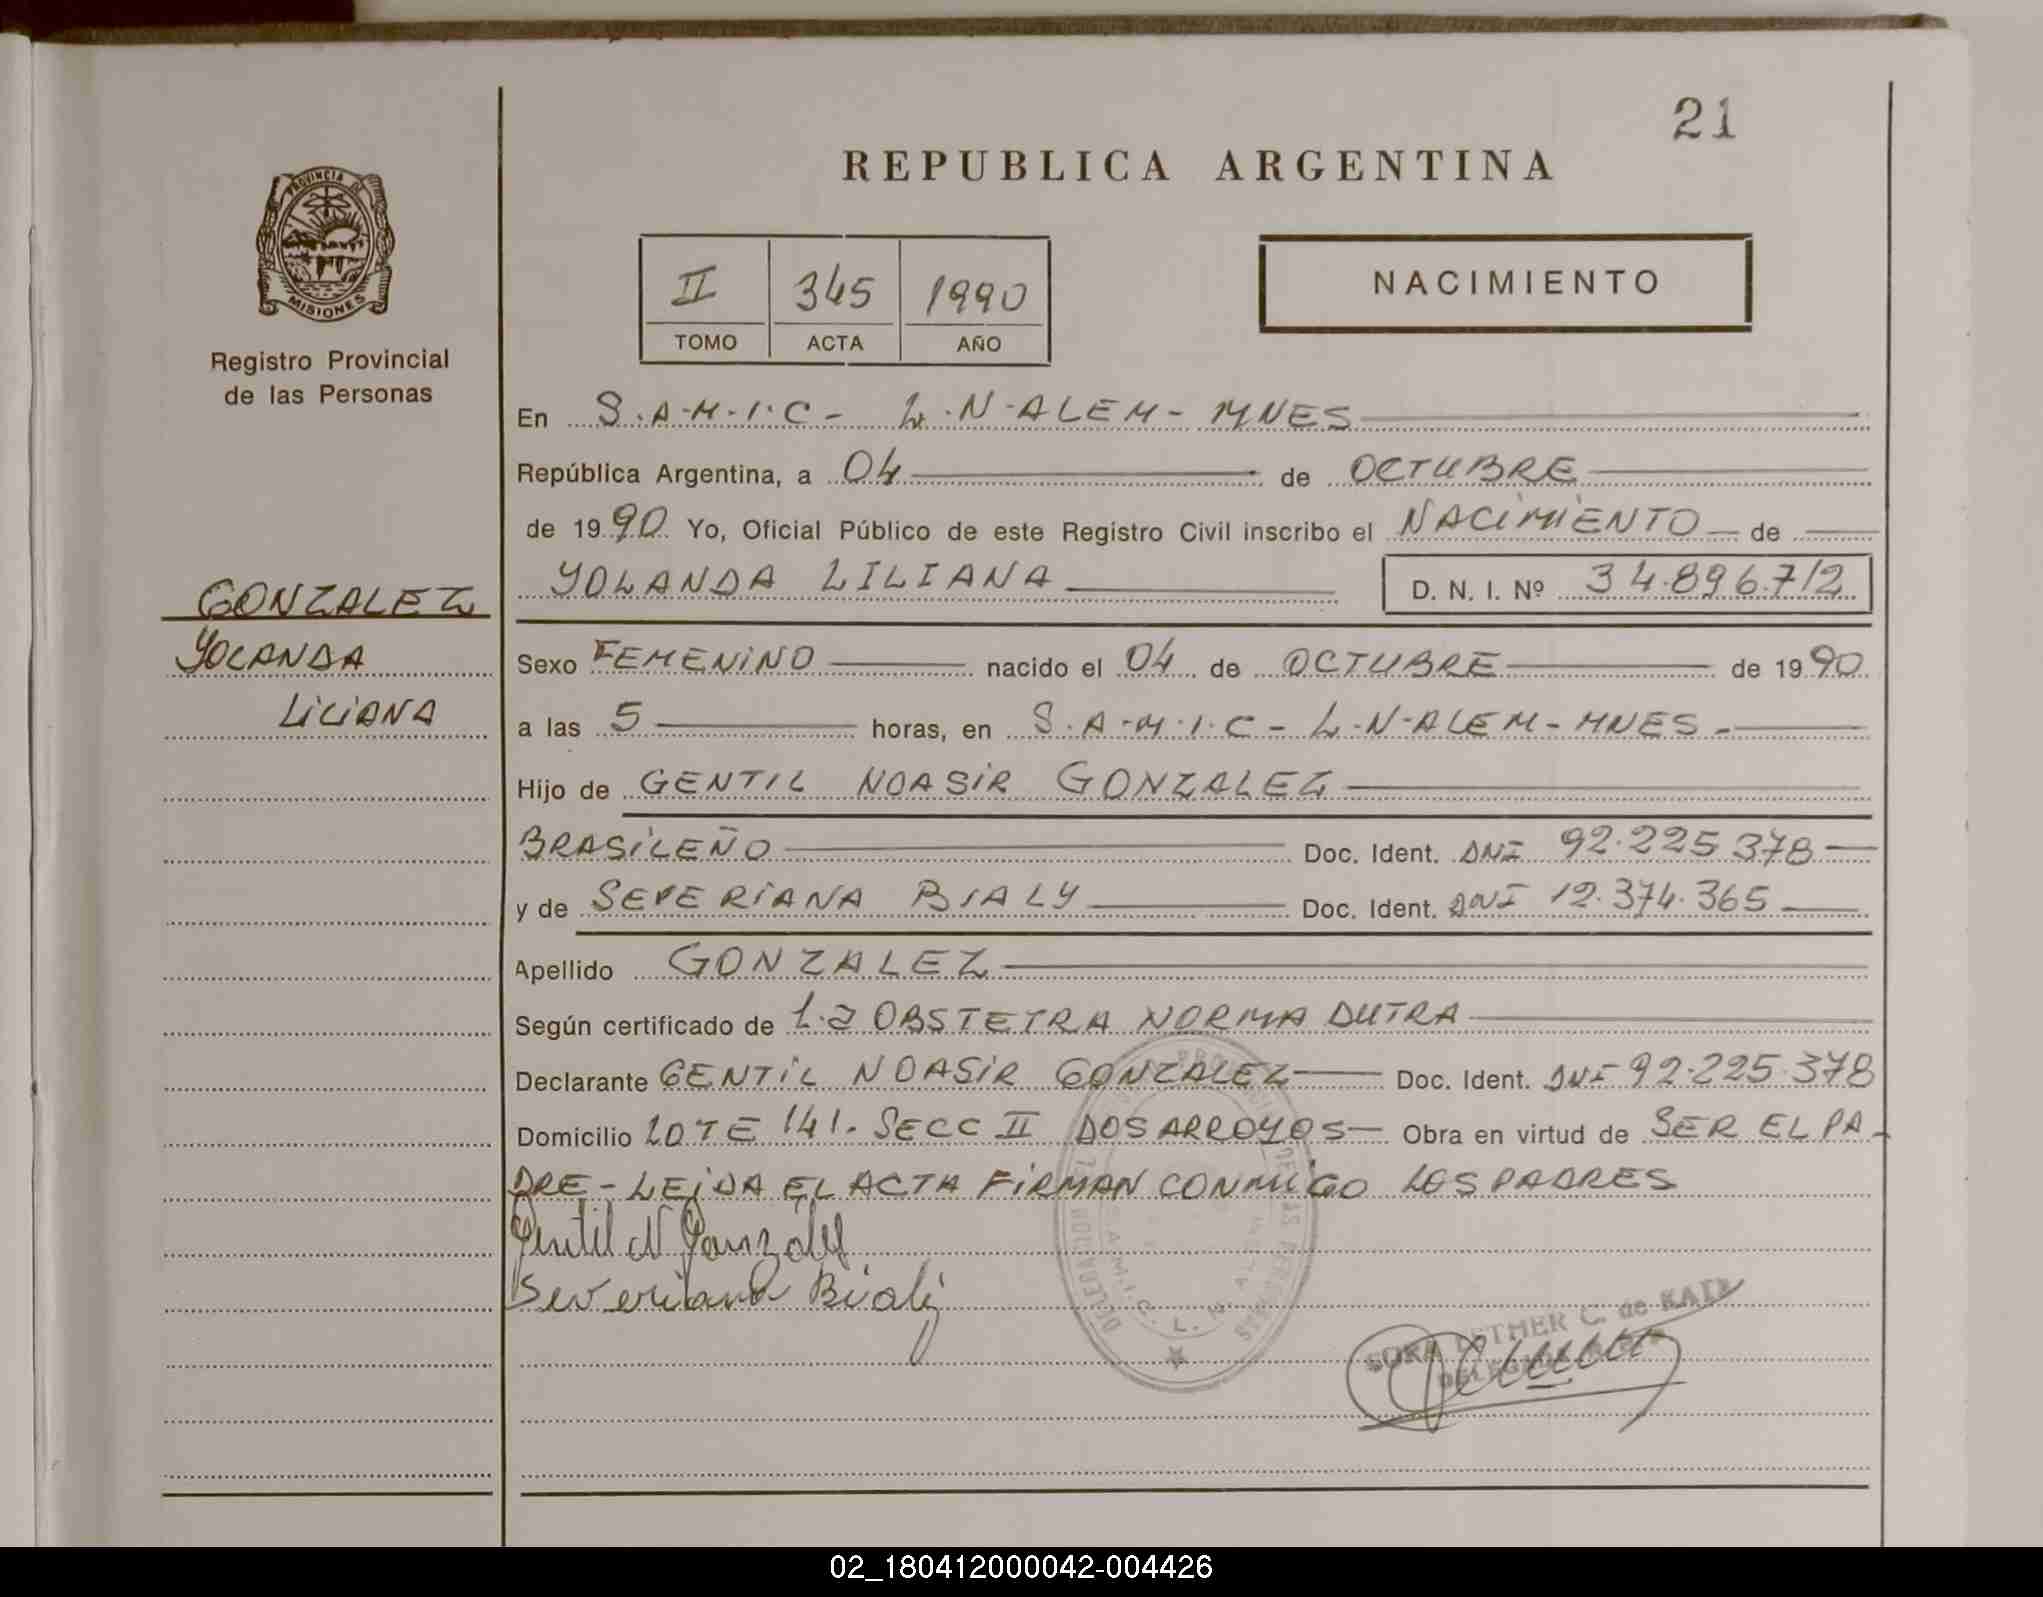 21
REPUBLICA ARGENTINA
PROVINCIA DE
MISIONES
Registro Provincial
de las Personas
II 345 1990
TOMO ACTA AÑO
NACIMIENTO
En S.A.M.I.C - L.N.ALEM - MNES
República Argentina, a 04 de OCTUBRE
de 1990 Yo, Oficial Público de este Registro Civil inscribo el NACIMIENTO de
YOLANDA LILIANA D. N. I. Nº 34.896.712
GONZALEZ
YOLANDA
LILIANA
Sexo FEMENINO nacido el 04 de OCTUBRE de 1990
a las 5 horas, en S.A.M.I.C - L.N.ALEM - MNES -
Hijo de GENTIL NOASIR GONZALEZ
BRASILEÑO Doc. Ident. DNI 92.225.378
y de SEVERIANA BIALY Doc. Ident. DNI 12.374.365
Apellido GONZALEZ
Según certificado de LA OBSTETRA NORMA DUTRA
Declarante GENTIL NOASIR GONZALEZ Doc. Ident. DNI 92.225.378
Domicilio LOTE 141. SECC II DOS ARROYOS Obra en virtud de SER EL PA-
DRE - LEIDA EL ACTA FIRMAN CONMIGO LOS PADRES
Gentil N Gonzalez
Severiana Bialy
DELEGACION
DE LAS PERSONAS
S.A.M.I.C. L. N. ALEM
ESTHER C. de
02_180412000042-004426